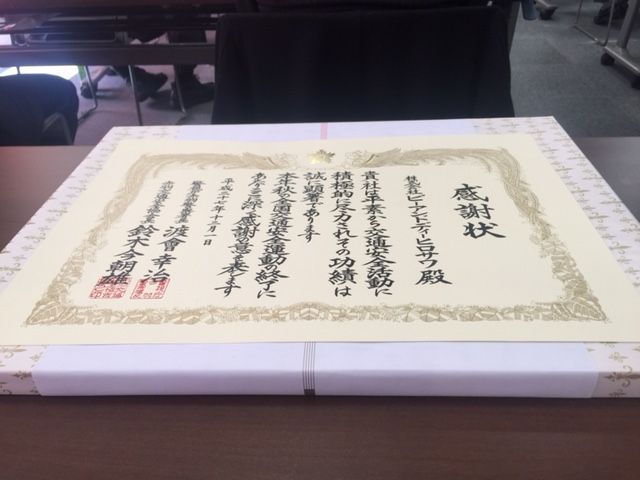 感謝状
株式会社ビートンドディーヒロサワ 殿
貴社は平素から交通安全活動に
積極的に尽力されその功績は
誠に顕著であります
本年秋の全国交通安全運動の終了に
あたり深く感謝の意を表します
平成二十七年十二月一日
渡會幸治
鈴木今朝雄